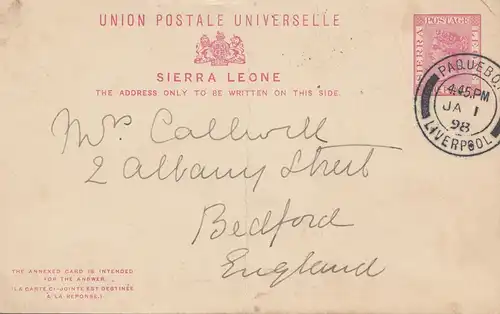 UNION POSTALE UNIVERSELLE
SIERRA LEONE
THE ADDRESS ONLY TO BE WRITTEN ON THIS SIDE.
SIERRA
POSTAGE
PAQUEBO
4.45.PM
JA 1
98
LIVERPOOL
Mrs Callwell
2 Albany Street
Bedford
England
THE ANNEXED CARD IS INTENDED
FOR THE ANSWER.
(LA CARTE CI-JOINTE EST DESTINÉE
À LA RÉPONSE.)